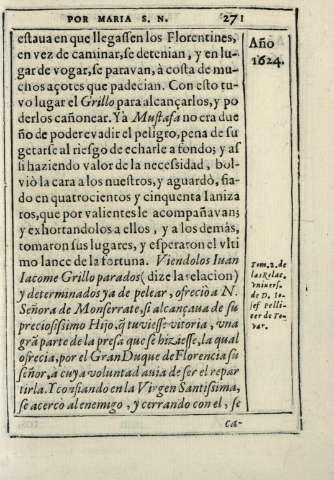 POR MARIA S. N. 271
estaua en que llegassen los Florentines,
en vez de caminar, se detenian, y en lu-
gar de vogar, se paravan, à costa de mu-
chos açotes que padecian. Con esto tu-
vo lugar el Grillo para alcançarlos, y po
derlos cañonear. Ya Mustafa no era due
ño de poder evadir el peligro, pena de su
getarse al riesgo de echarle a fondo; y as
si haziendo valor de la necessidad, bol-
viò la cara a los nuestros, y aguardò, fia-
do en quatrocientos y cinquenta Ianiza
ros, que por valientes le acompañavan;
y exhortandolos a ellos, y a los demàs,
tomaron sus lugares, y esperaron el vlti
mo lance de la fortuna. Viendolos Iuan
Iacome Grillo parados (dize la relacion)
y determinados ya de pelear, ofreciò a N.
Señora de Monserrate, si alcançaua de su
preciosissimo Hijo, q̃ tuviesse vitoria, vna
grã parte de la presa que se hiziesse, la qual
ofrecia, por el Gran Duque de Florencia su
señor, a cuya voluntad auia de ser el repar
tirla. Y confiando en la Virgen Santissima,
se acercò al enemigo, y cerrando con el, se
ca-
Año
1624.
Tom. 2. de
las Relac.
vniuers.
de D. Io-
sef Pelli-
cer de To-
var.